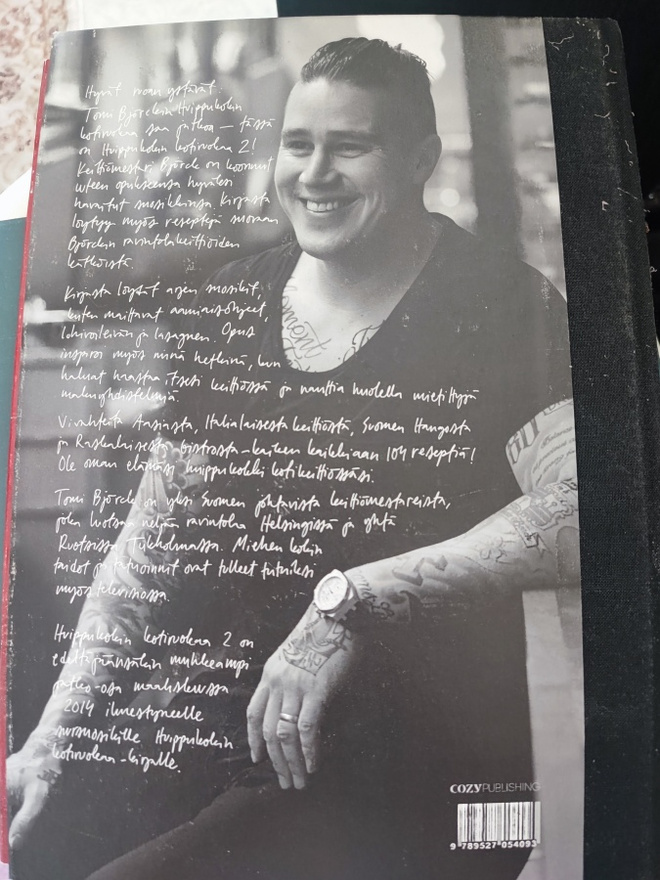 Hyvät ruoan ystävät:
Tomi Björckin Huippukokin
kotiruokaa saa jatkoa – tässä
on Huippukokin kotiruokaa 2!
Keittiömestari Björck on koonnut
uuteen opukseensa hyväksi
havaitut suosikkinsa. Kirjasta
löytyy myös reseptejä suoraan
Björckin ravintolakeittiöiden
kätköistä.
Kirjasta löydät arjen suosikit,
kuten maittavat aamiaisohjeet,
lohivoileivän ja lasagnen. Opus
inspiroi myös niinä hetkinä, kun
haluat haastaa itsesi keittiössä ja nauttia huolella mietittyjä
makuyhdistelmiä.
Vivahteita Aasiasta, Italialaisesta keittiöstä, Suomen Hangosta
ja Ranskalaisesta bistrosta – kaiken kaikkiaan 104 reseptiä!
Ole oman elämäsi huippukokki kotikeittiössäsi.
Tomi Björck on yksi Suomen johtavista keittiömestareista,
joka luotsaa neljää ravintolaa Helsingissä ja yhtä
Ruotsissa, Tukholmassa. Miehen kokin
taidot ja karisma ovat tulleet tutuiksi
myös televisiossa.
Huippukokin kotiruokaa 2 on
edeltäjäänsäkin muhkeampi
jatko-osa maaliskuussa
2014 ilmestyneelle
suursuosikille Huippukokin
kotiruokaa -kirjalle.
COZYPUBLISHING
9 789527 054093